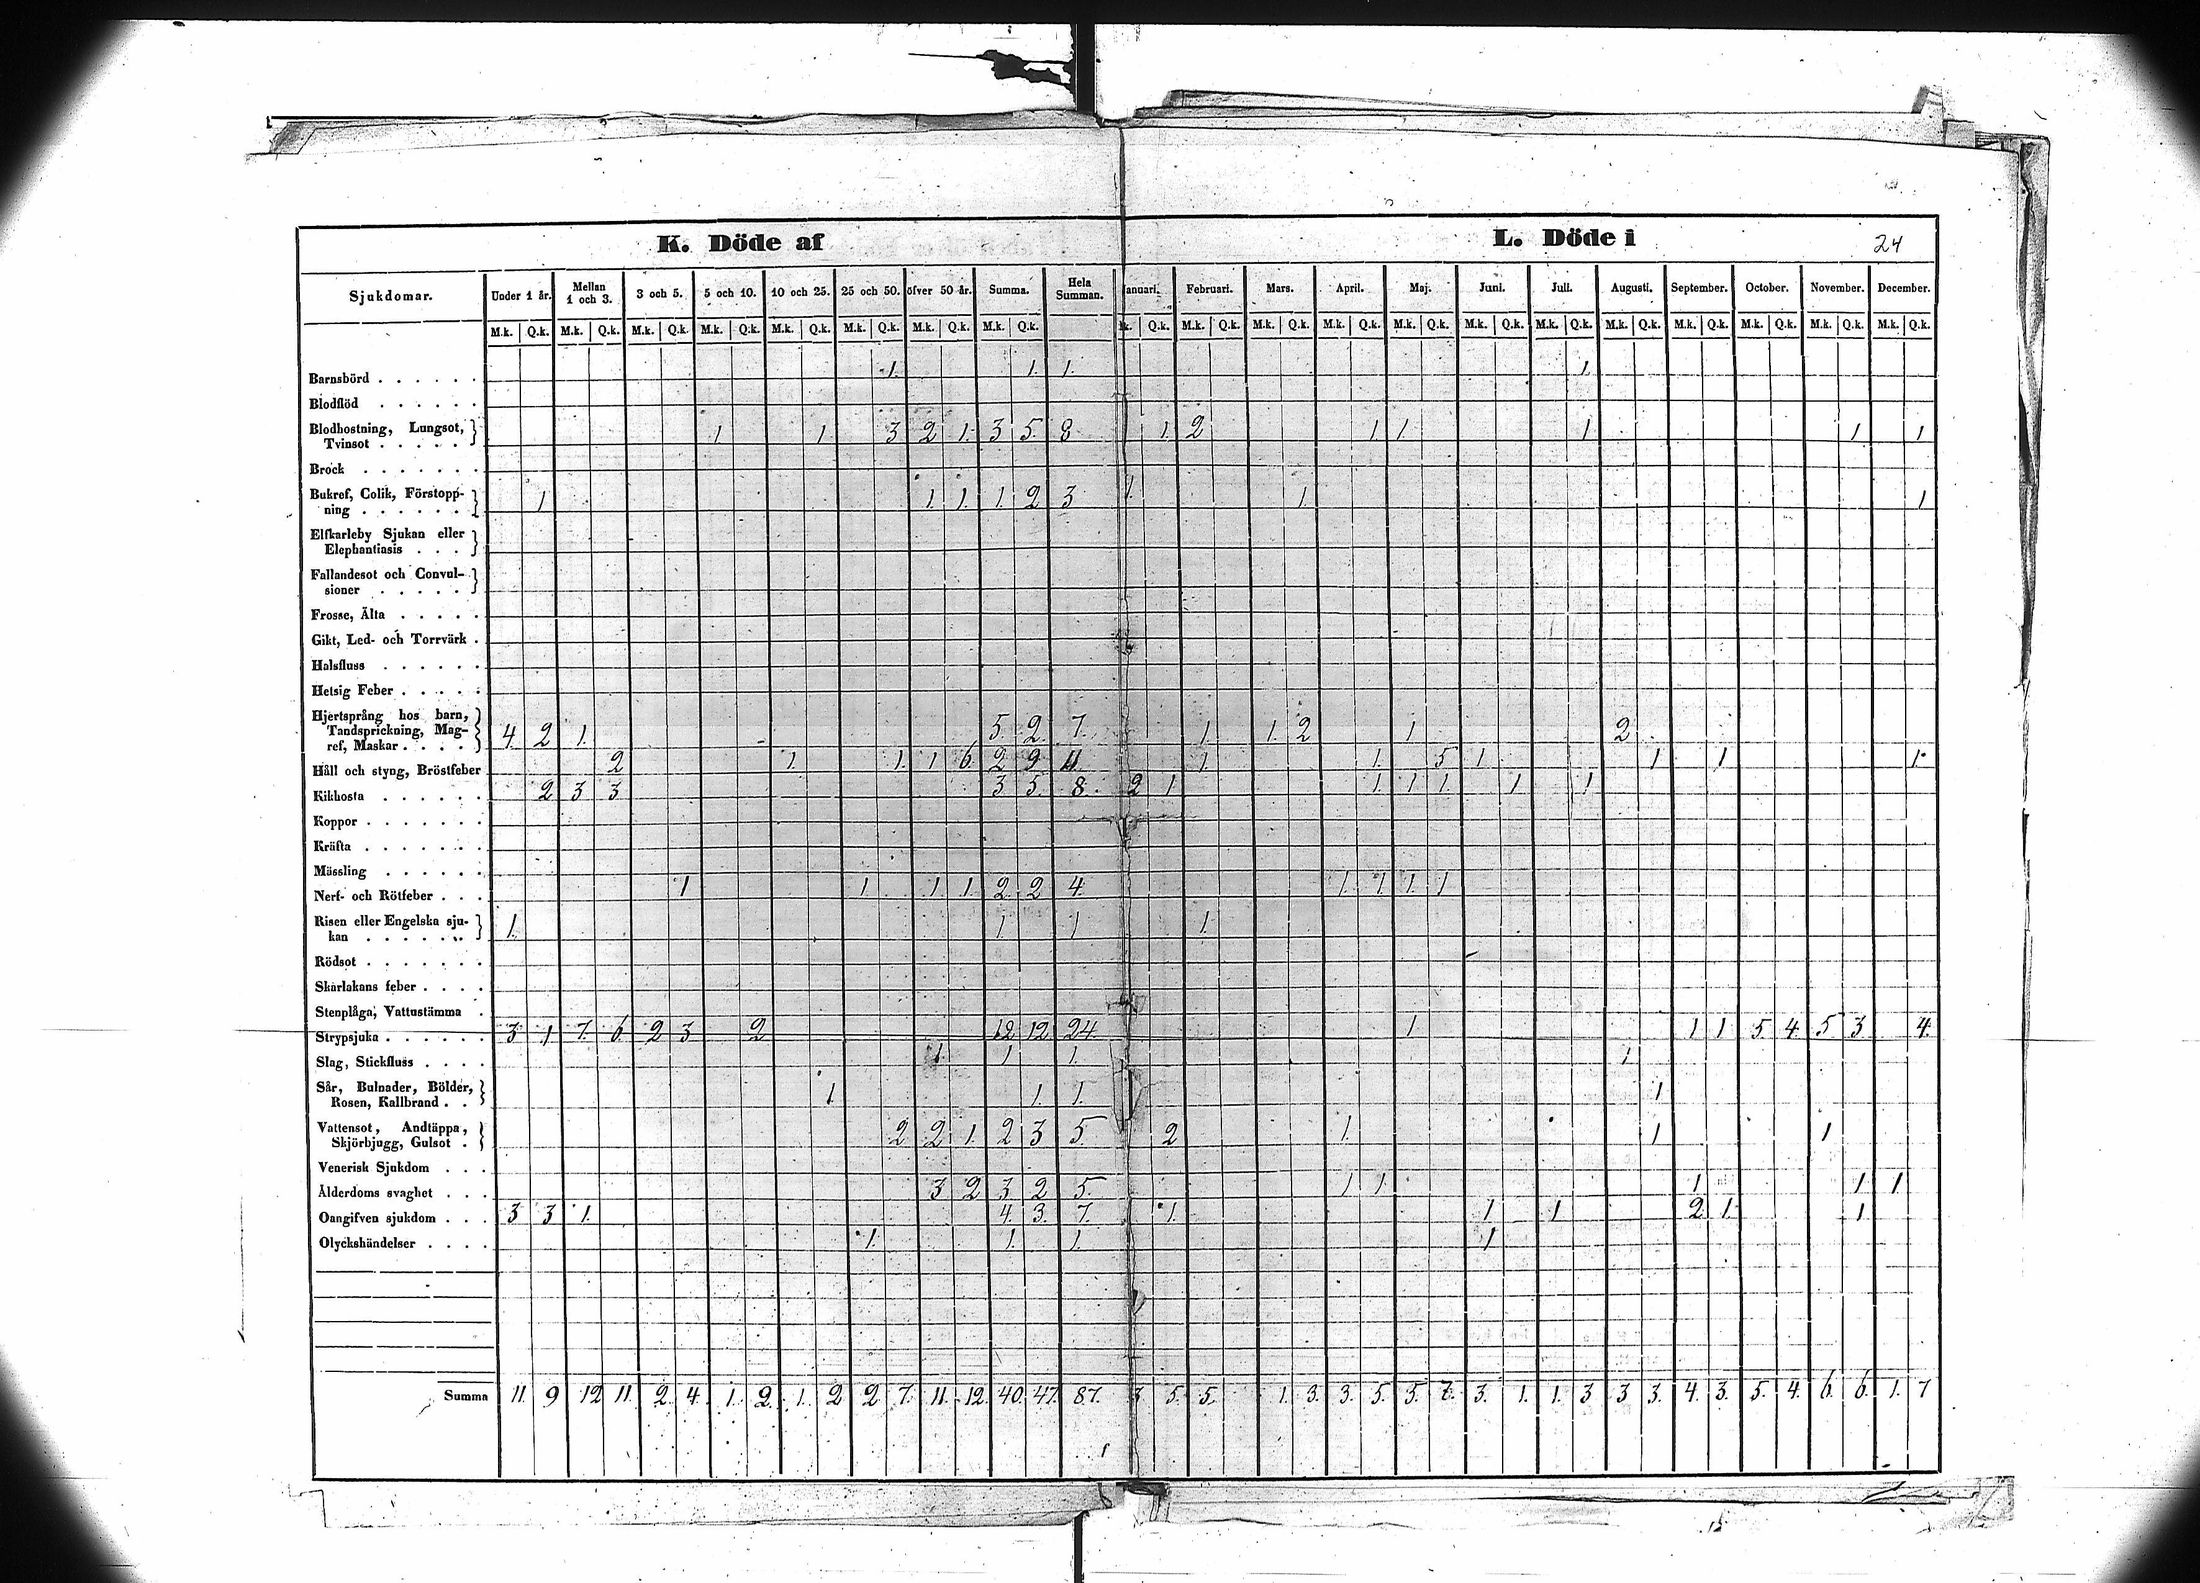 K. Döde af L. Döde i 24
Sjukdomar. Under 1 år. Mellan 1 och 3. 3 och 5. 5 och 10. 10 och 25. 25 och 50. öfver 50 år. Summa. Hela Summan. anuari. Februari. Mars. April. Maj. Juni. Juli. Augusti. September. October. November. December.
M.k. Q.k. M.k. Q.k. M.k. Q.k. M.k. Q.k. M.k. Q.k. M.k. Q.k. M.k. Q.k. M.k. Q.k. k. Q.k. M.k. Q.k. M.k. Q.k. M.k. Q.k. M.k. Q.k. M.k. Q.k. M.k. Q.k. M.k. Q.k. M.k. Q.k. M.k. Q.k. M.k. Q.k. M.k. Q.k.
Barnsbörd . . . . . . 1. 1. 1. 1
Blodflöd . . . . . .
Blodhostning, Lungsot,
Tvinsot . . . . . 1 1. 3 2 1. 3 5. 8 1. 2 1. 1. 1 1 1
Brock . . . . . . .
Bukref, Colik, Förstopp-
ning . . . . . . 1 1. 1. 1. 2 3 1. 1. 1
Elfkarleby Sjukan eller
Elephantiasis . . .
Fallandesot och Convul-
sioner . . . . .
Frosse, Älta . . . . .
Gikt, Led- och Torrvärk .
Halsfluss . . . . . .
Hetsig Feber . . . . .
Hjertsprång hos barn,
Tandsprickning, Mag-
ref, Maskar . . . . 4. 2 1. 5. 2. 7. 1. 1. 2 1 2
Håll och styng, Bröstfeber 2 1. 1. 1 6. 2 9 11. 1 1. 5 1 1 1 1.
Kikhosta . . . . . . 2 3 3 3 5. 8. 2 1 1. 1 1. 1 1
Koppor . . . . . . .
Kräfta . . . . . . .
Mässling . . . . . .
Nerf- och Rötfeber . . . 1 1 1 1. 2. 2 4. 1. 1. 1. 1
Risen eller Engelska sju-
kan . . . . . . 1. 1. 1 1.
Rödsot . . . . . . .
Skarlakans feber . . . .
Stenplåga, Vattustämma .
Strypsjuka . . . . . . 3 1 7. 6. 2 3 2 12 12 24. 1 1 1 5 4. 5 3 4.
Slag, Stickfluss . . . . 1. 1 1. 1
Sår, Bulnader, Bölder,
Rosen, Kallbrand . . 1. 1. 1. 1
Vattensot, Andtäppa,
Skjörbjugg, Gulsot . 2 2 1. 2 3 5 2 1. 1 1
Venerisk Sjukdom . . .
Ålderdoms svaghet . . . 3 2 3 2 5. 1 1. 1 1 1
Oangifven sjukdom . . . 3 3 1. 4. 3. 7. 1. 1 1 2 1 1
Olyckshändelser . . . . 1. 1. 1. 1
Summa 11. 9 12 11. 2. 4 1. 2. 1. 2 2 7. 11. 12. 40. 47. 87. 3 5. 5. 1. 3. 3. 5. 5. 7. 3. 1. 1. 3 3 3. 4. 3. 5. 4. 6. 6. 1. 7